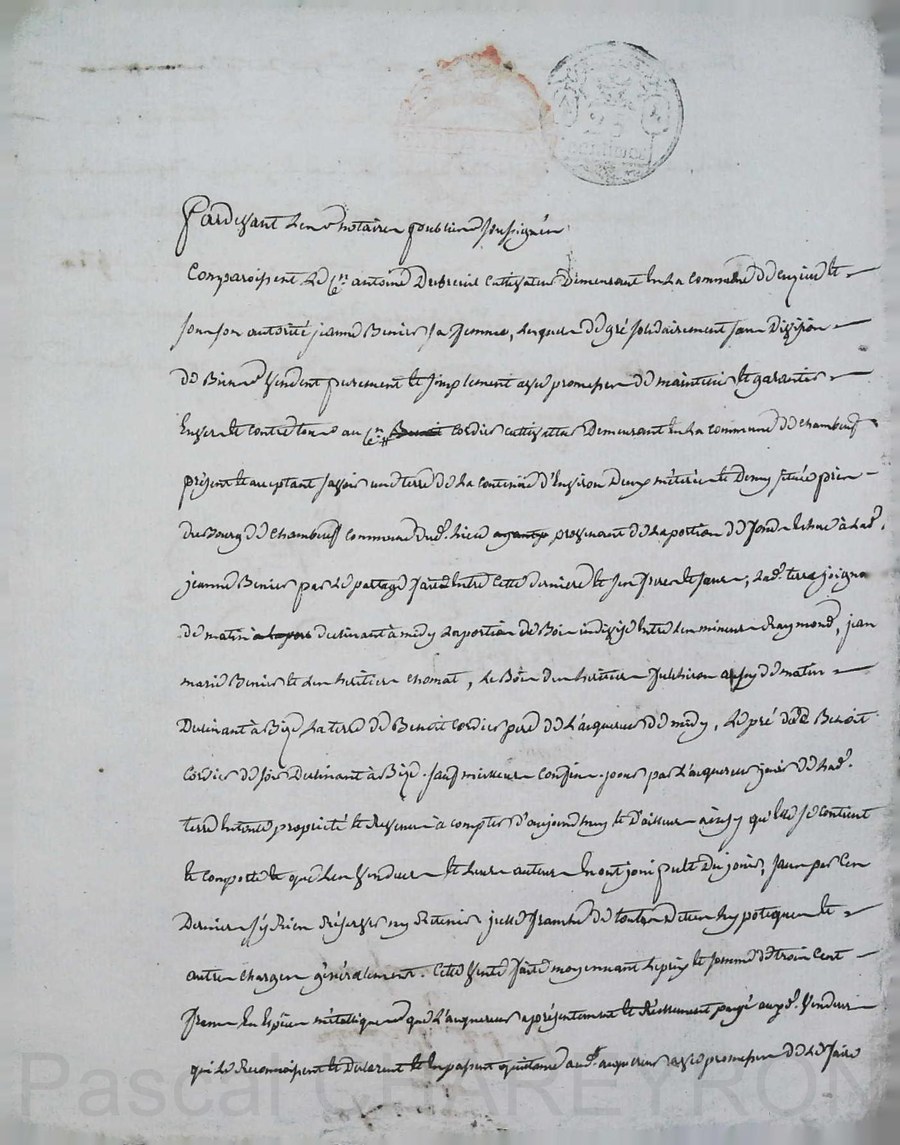 25
centimes
Pardevant les notaires publics soussignés
Comparoissent le Cen antoine Dubreuil cultivateur Demeurant en la commune de cuzieu et
sous son autorité jeanne Benier sa femme, lesquels de gré solidairement sans Division
de Biens Vendent purement et simplement avec promesse de maintenir et garantir
Envers et contre tous au Cen Benoit Cordier cultivateur Demeurant en la commune de chambeuf
présent et acceptant savoir une terre de la contenue d'Environ Deux métérées et Demy située près
du Bourg de chambeuf commune dud. lieu provenant de la portion de fonds échue à lad.
jeanne Benier par le partage fait Entre cette derniere et ses freres et sœurs, lad. terre joignant
de matin declinant à midy la portion de Bois indivise Entre les mineurs Raymond, jean
marie Benier et les heritiers chomat, le Bois des heritiers aussy de matin
Declinant à Bize, la terre de Benoit Cordier pere de l'acquereur de midy, le pré dud Benoit
Cordier de soir Declinant à Bize. sauf meilleurs confins. pour par l'acquereur jouir de lad.
terre En toute propriété et Revenu à compter d'aujourd'huy et D'ailleurs ainsy qu'elle se contient
et comporte et que les Vendeurs et leurs auteurs En ont joui pu et Du jouir, sans par ces
Derniers s'y Rien Réserver ny Retenir franche de toutes Dettes hypoteques et
autres charges généralement. Cette Vente faite moyennant le prix et somme de trois Cent
francs En Espèces métalliques que l'acquereur a présentement et Réellement payé auxd. Vendeurs
qui le Reconnoissent et Declarent et En passent quittance aud. acquereur avec promesse de le faire
Pascal CHAREYRON